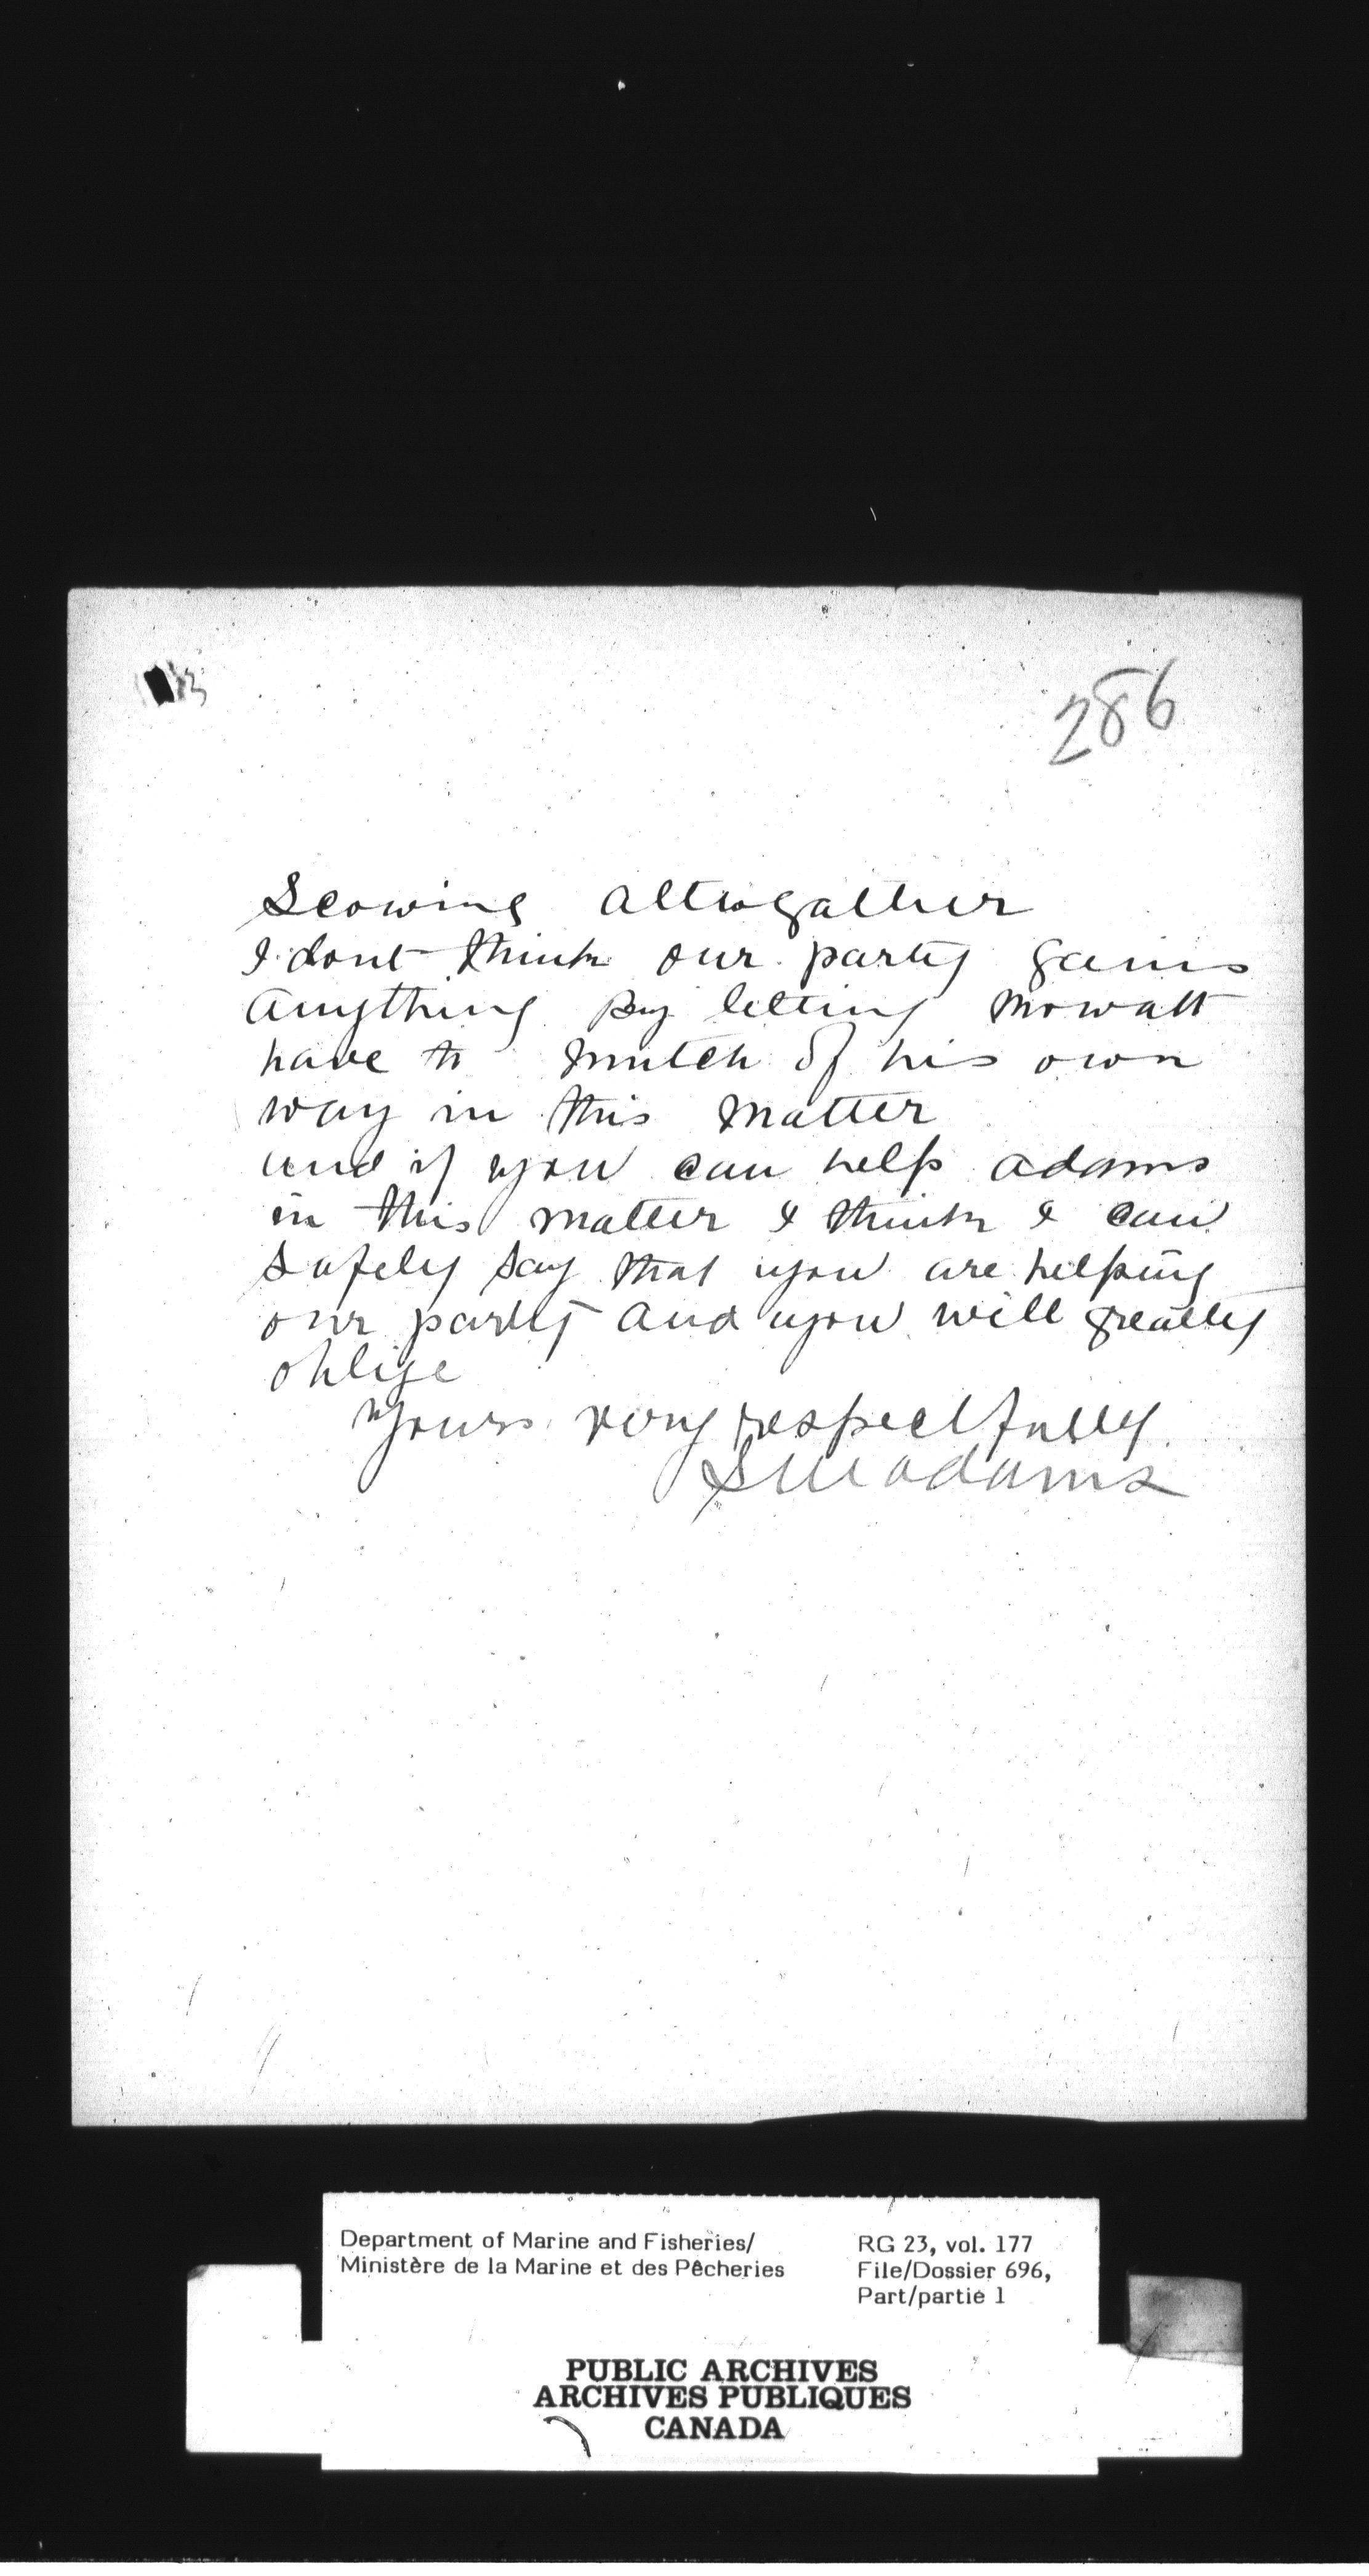 286
Scowing altwogather
I dont think our party gains
anything by letting Mowatt
have to mutch of his own
way in this matter
and if you can help adams
in this matter I think I can
safely say that you are helping
our party and you will greatly
oblige
Yours very respectfully
S M adams
Department of Marine and Fisheries/
Ministère de la Marine et des Pêcheries
RG 23, vol. 177
File/Dossier 696,
Part/partie 1
PUBLIC ARCHIVES
ARCHIVES PUBLIQUES
CANADA